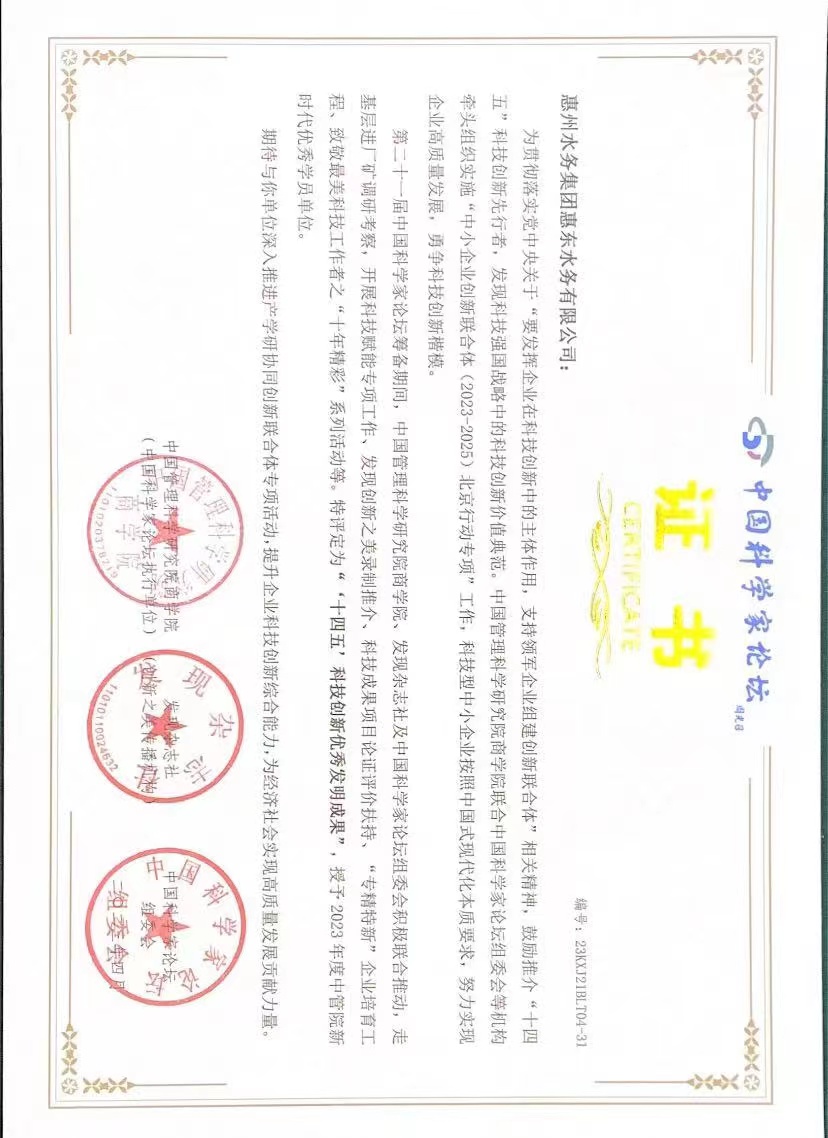 中国科学家论坛
证书
CERTIFICATE
编号：23KXJ21BLT04-31
惠州水务集团惠东水务有限公司：
为贯彻落实党中央关于“要发挥企业在科技创新中的主体作用，支持领军企业组建创新联合体”相关精神，鼓励推介“十四
五”科技创新先行者，发现科技强国战略中的科技创新价值典范。中国管理科学研究院商学院联合中国科学家论坛组委会等机构
牵头组织实施“中小企业创新联合体（2023-2025）北京行动专项”工作，科技型中小企业按照中国式现代化本质要求，努力实现
企业高质量发展，勇争科技创新楷模。
第二十一届中国科学家论坛筹备期间，中国管理科学研究院商学院、发现杂志社及中国科学家论坛组委会积极联合推动，走
基层进厂矿调研考察，开展科技赋能专项工作、发现创新之美录制推介、科技成果项目论证评价扶持、“专精特新”企业培育工
程、致敬最美科技工作者之“十年精彩”系列活动等。特评定为“‘十四五’科技创新优秀发明成果”，授予2023年度中管院新
时代优秀学员单位。
期待与你单位深入推进产学研协同创新联合体专项活动，提升企业科技创新综合能力，为经济社会实现高质量发展贡献力量。
中国管理科学研究院商学院
（中国科学家论坛执行单位）
发现杂志社
（创新之美传播机构）
中国科学家论坛
组委会
年四月
商学院
1101020378719
发现杂志社
11010110024632
中国科学家论坛
组委会